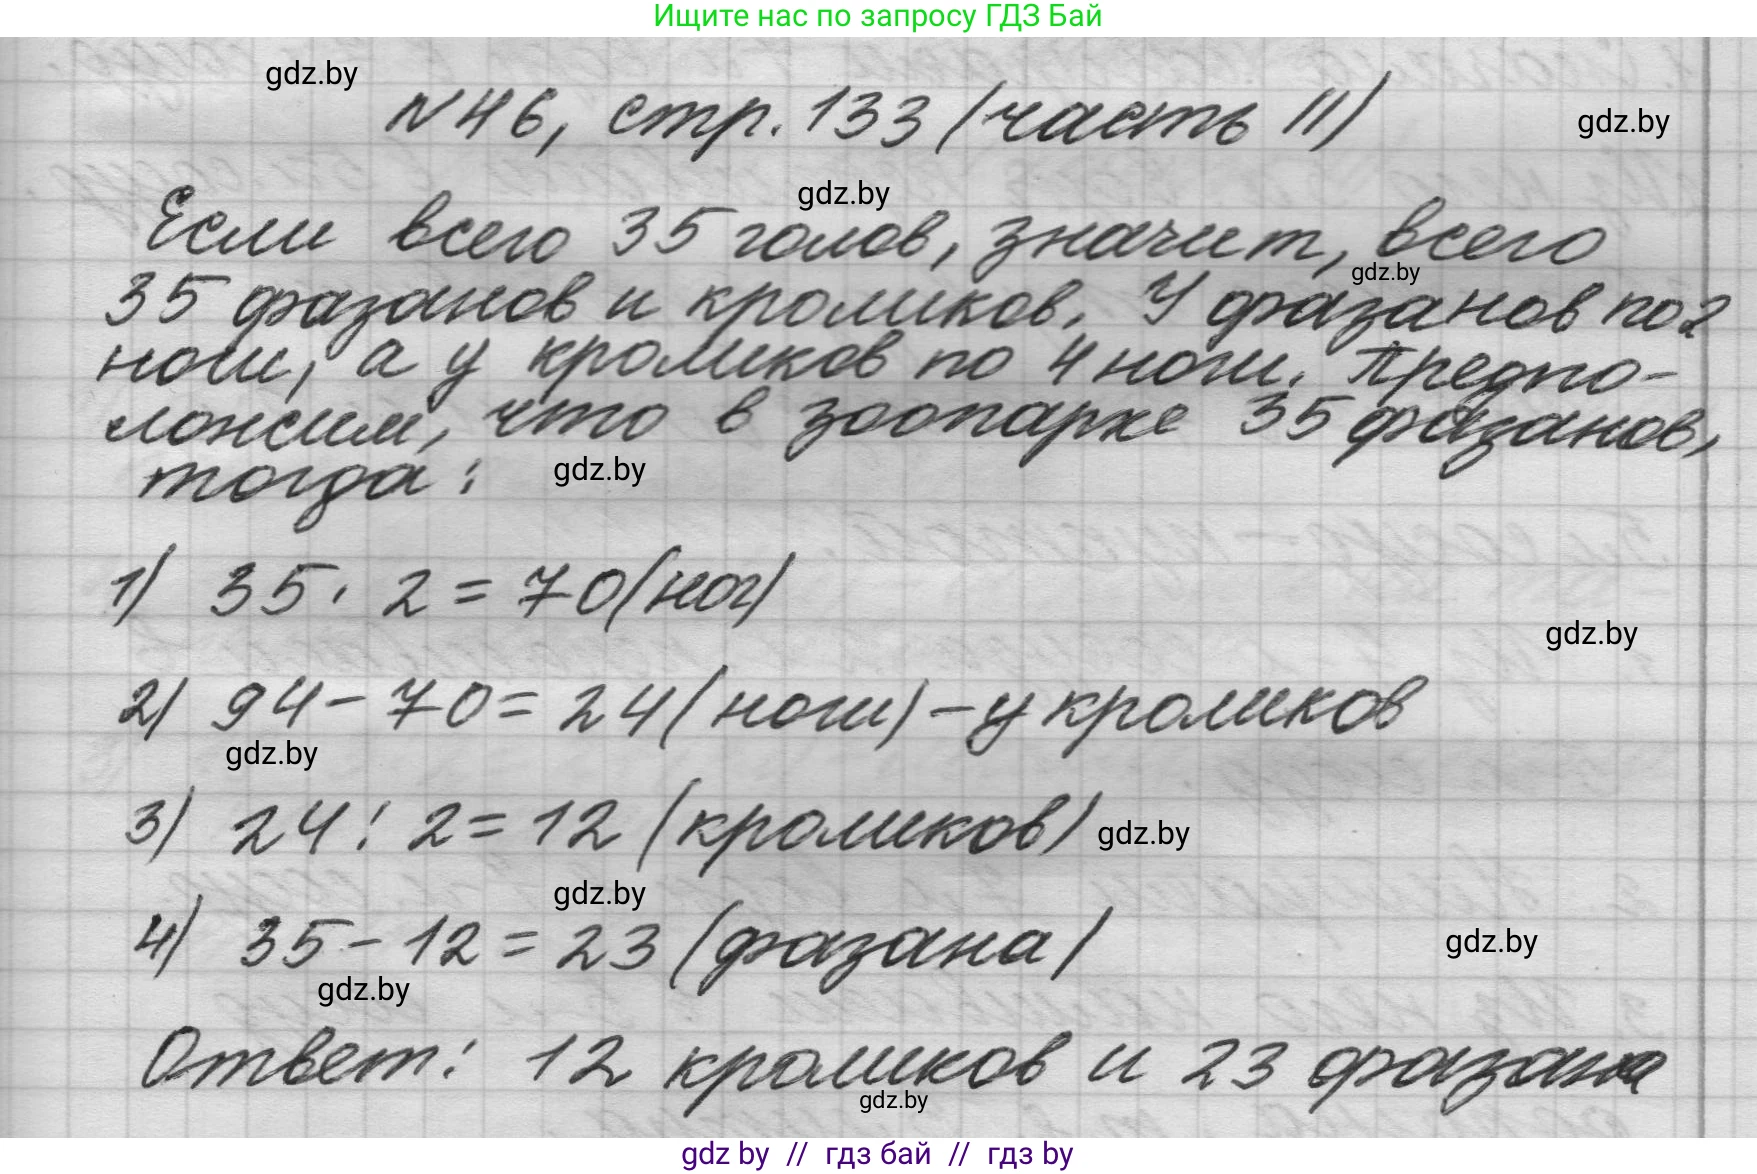 Ищите нас по запросу ГДЗ Бай
gdz.by
N46, стр. 133 (часть II)
gdz.by
gdz.by
Если всего 35 голов, значит, всего
gdz.by
35 фазанов и кроликов. У фазанов по 2
ноги, а у кроликов по 4 ноги. Предпо-
ложим, что в зоопарке 35 фазанов,
тогда:
gdz.by
1) 35 · 2 = 70 (ног)
gdz.by
2) 94 - 70 = 24 (ноги) - у кроликов
gdz.by
3) 24 : 2 = 12 (кроликов)
gdz.by
gdz.by
4) 35 - 12 = 23 (фазана)
gdz.by
gdz.by
Ответ: 12 кроликов и 23 фазана
gdz.by
gdz by // гдз бай // гдз by